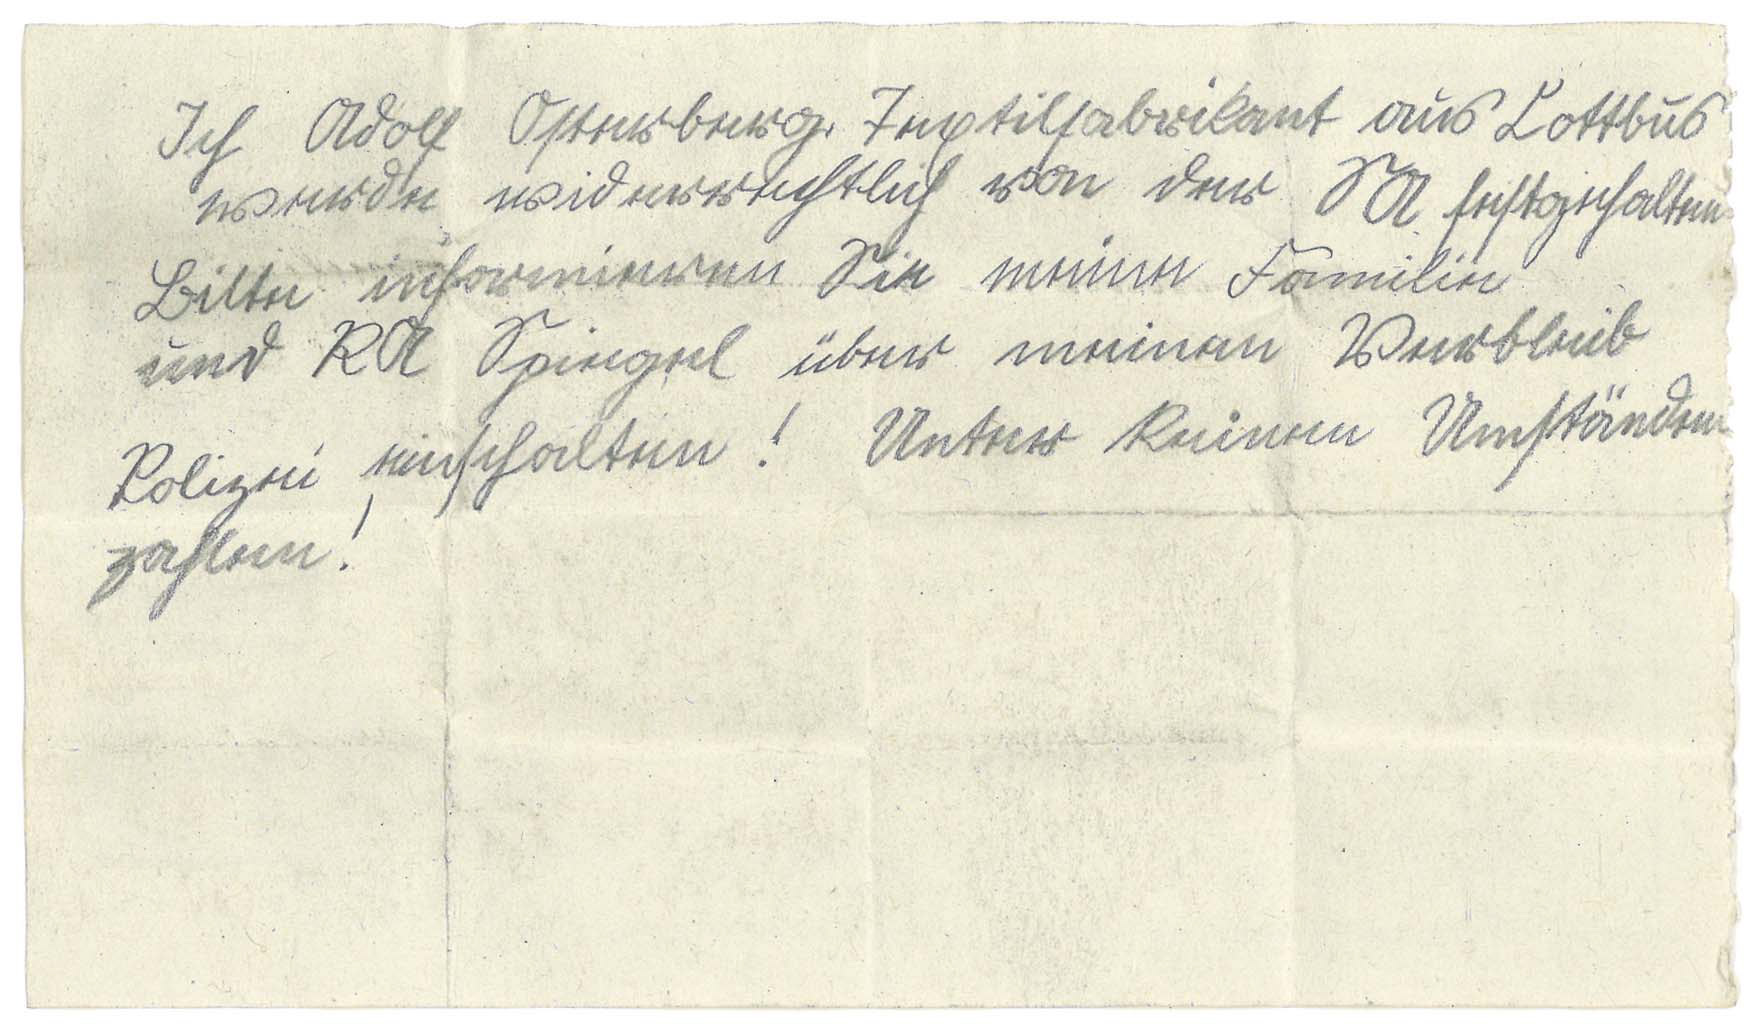 Ich Adolf Osterberg, Textilfabrikant aus Cottbus
werde widerrechtlich von der SA festgehalten
Bitte informieren Sie meine Familie
und RA Spiegel über meinen Verbleib
Polizei einschalten! Unter keinen Umständen
zahlen!